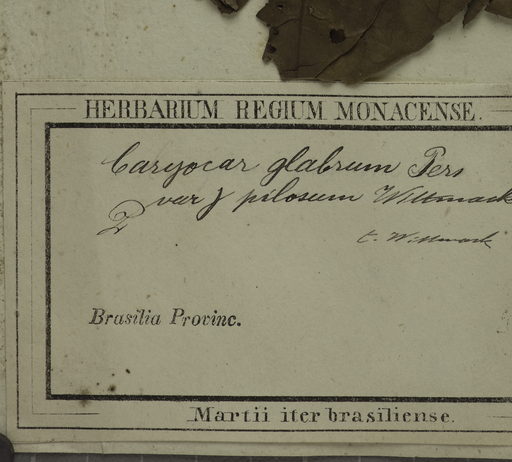 HERBARIUM REGIUM MONACENSE.
Caryocar glabrum Pers
var γ pilosum Wittmack
t. Wittmack
Brasilia Provinc.
Martii iter brasiliense.